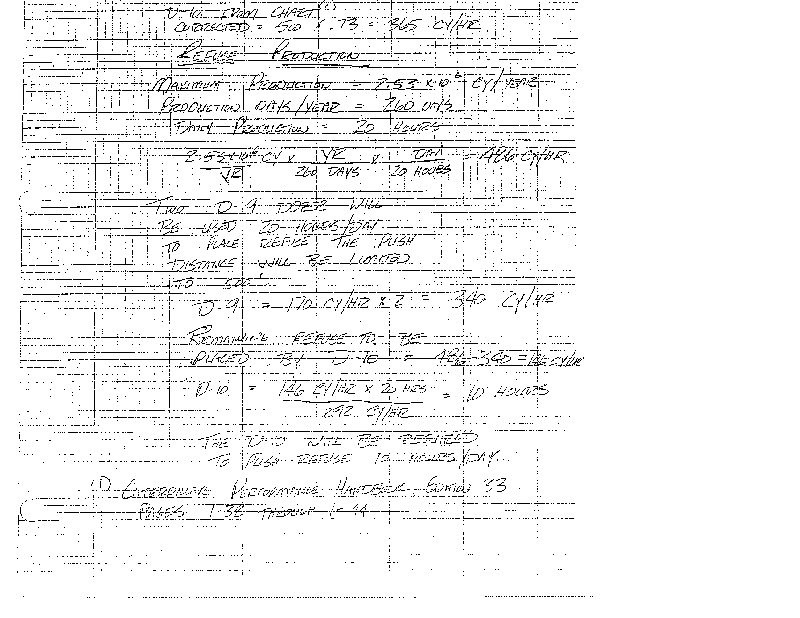 D-10 FROM CHART (1)
CORRECTED = 500 x .73 = 365 CY/HR
REFUSE PRODUCTION
MAXIMUM PRODUCTION = 2.53 x 10^6 CY/YEAR
PRODUCTION DAYS/YEAR = 260 DAYS
DAILY PRODUCTION = 20 HOURS
2.53x10^6 CY x YR x DAY = 486 CY/HR
YR 260 DAYS 20 HOURS
TWO D-9 DOZERS WILL
BE USED 20 HOURS/DAY
TO PLACE REFUSE THE PUSH
DISTANCE WILL BE LIMITED
TO 500'.
D-9 = 170 CY/HR x 2 = 340 CY/HR
REMAINING REFUSE TO BE
PLACED BY D-10 = 486-340 = 146 CY/HR
D-10 = 146 CY/HR x 20 HRS = 10 HOURS
292 CY/HR
THE D-10 WILL BE REQUIRED
TO PUSH REFUSE 10 HOURS/DAY.
(1) CATERPILLAR PERFORMANCE HANDBOOK EDITION 33
PAGES 1-38 THROUGH 1-44